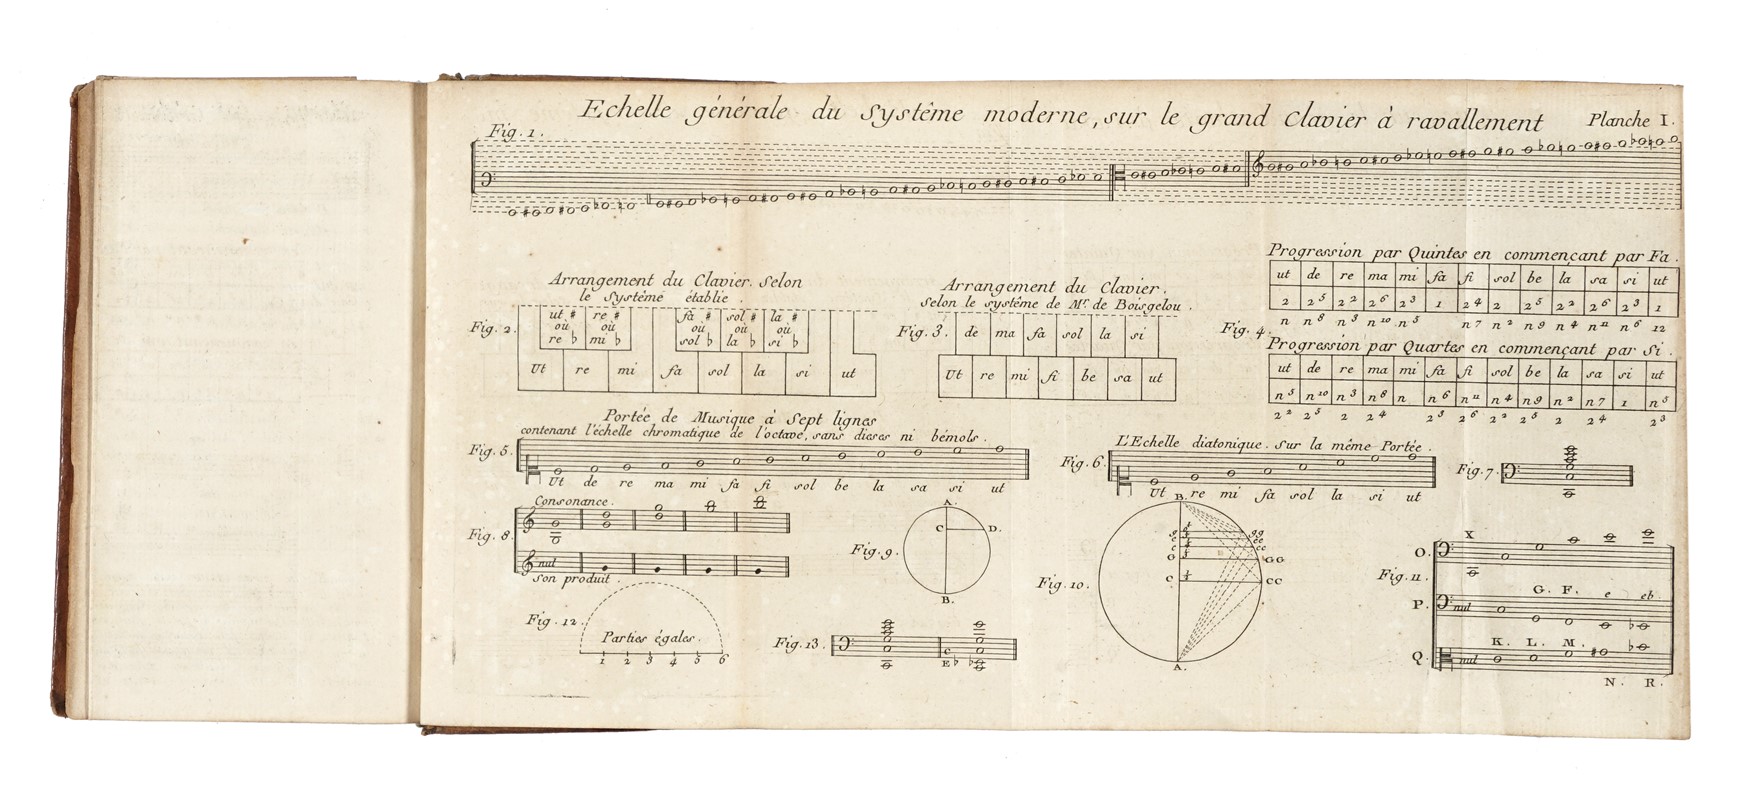 Echelle générale du Systême moderne, sur le grand Clavier à ravallement
Planche I.
Fig. 1.
Arrangement du Clavier Selon
le Systême établie.
Fig. 2.
ut # re # fa # sol # la #
où où où où où
re b mi b sol b la b si b
Ut re mi fa sol la si ut
Arrangement du Clavier.
Selon le systême de Mr. de Boisgelou.
Fig. 3.
de ma fa sol la si
Ut re mi fi be sa ut
Fig. 4.
Progression par Quintes en commençant par Fa.
ut de re ma mi fa fi sol be la sa si ut
2 2 5 2 2 2 6 2 3 1 2 4 2 2 5 2 2 2 6 2 3 1
n n 8 n 3 n 10 n 5 n 7 n 2 n 9 n 4 n 11 n 6 12
Progression par Quartes en commençant par Si.
ut de re ma mi fa fi sol be la sa si ut
n 5 n 10 n 3 n 8 n n 6 n 11 n 4 n 9 n 2 n 7 1 n 5
2 2 2 5 2 2 4 2 5 2 6 2 2 2 5 2 2 4 2 3
Portée de Musique à Sept lignes
contenant l'échelle chromatique de l'octave, sans dieses ni bémols.
Fig. 5.
Ut de re ma mi fa fi sol be la sa si ut
L'Echelle diatonique. Sur la même Portée.
Fig. 6.
Ut re mi fa sol la si ut
Fig. 7.
Consonance.
Fig. 8.
nul
Son produit.
Fig. 9.
A.
C D.
B.
Fig. 10.
B.
G GG
C CC
A.
Fig. 11.
X
O.
G. F. e eb
P. nul
K. L. M.
Q. nul
N. R.
Fig. 12.
Parties égales.
1 2 3 4 5 6
Fig. 13
C
E b